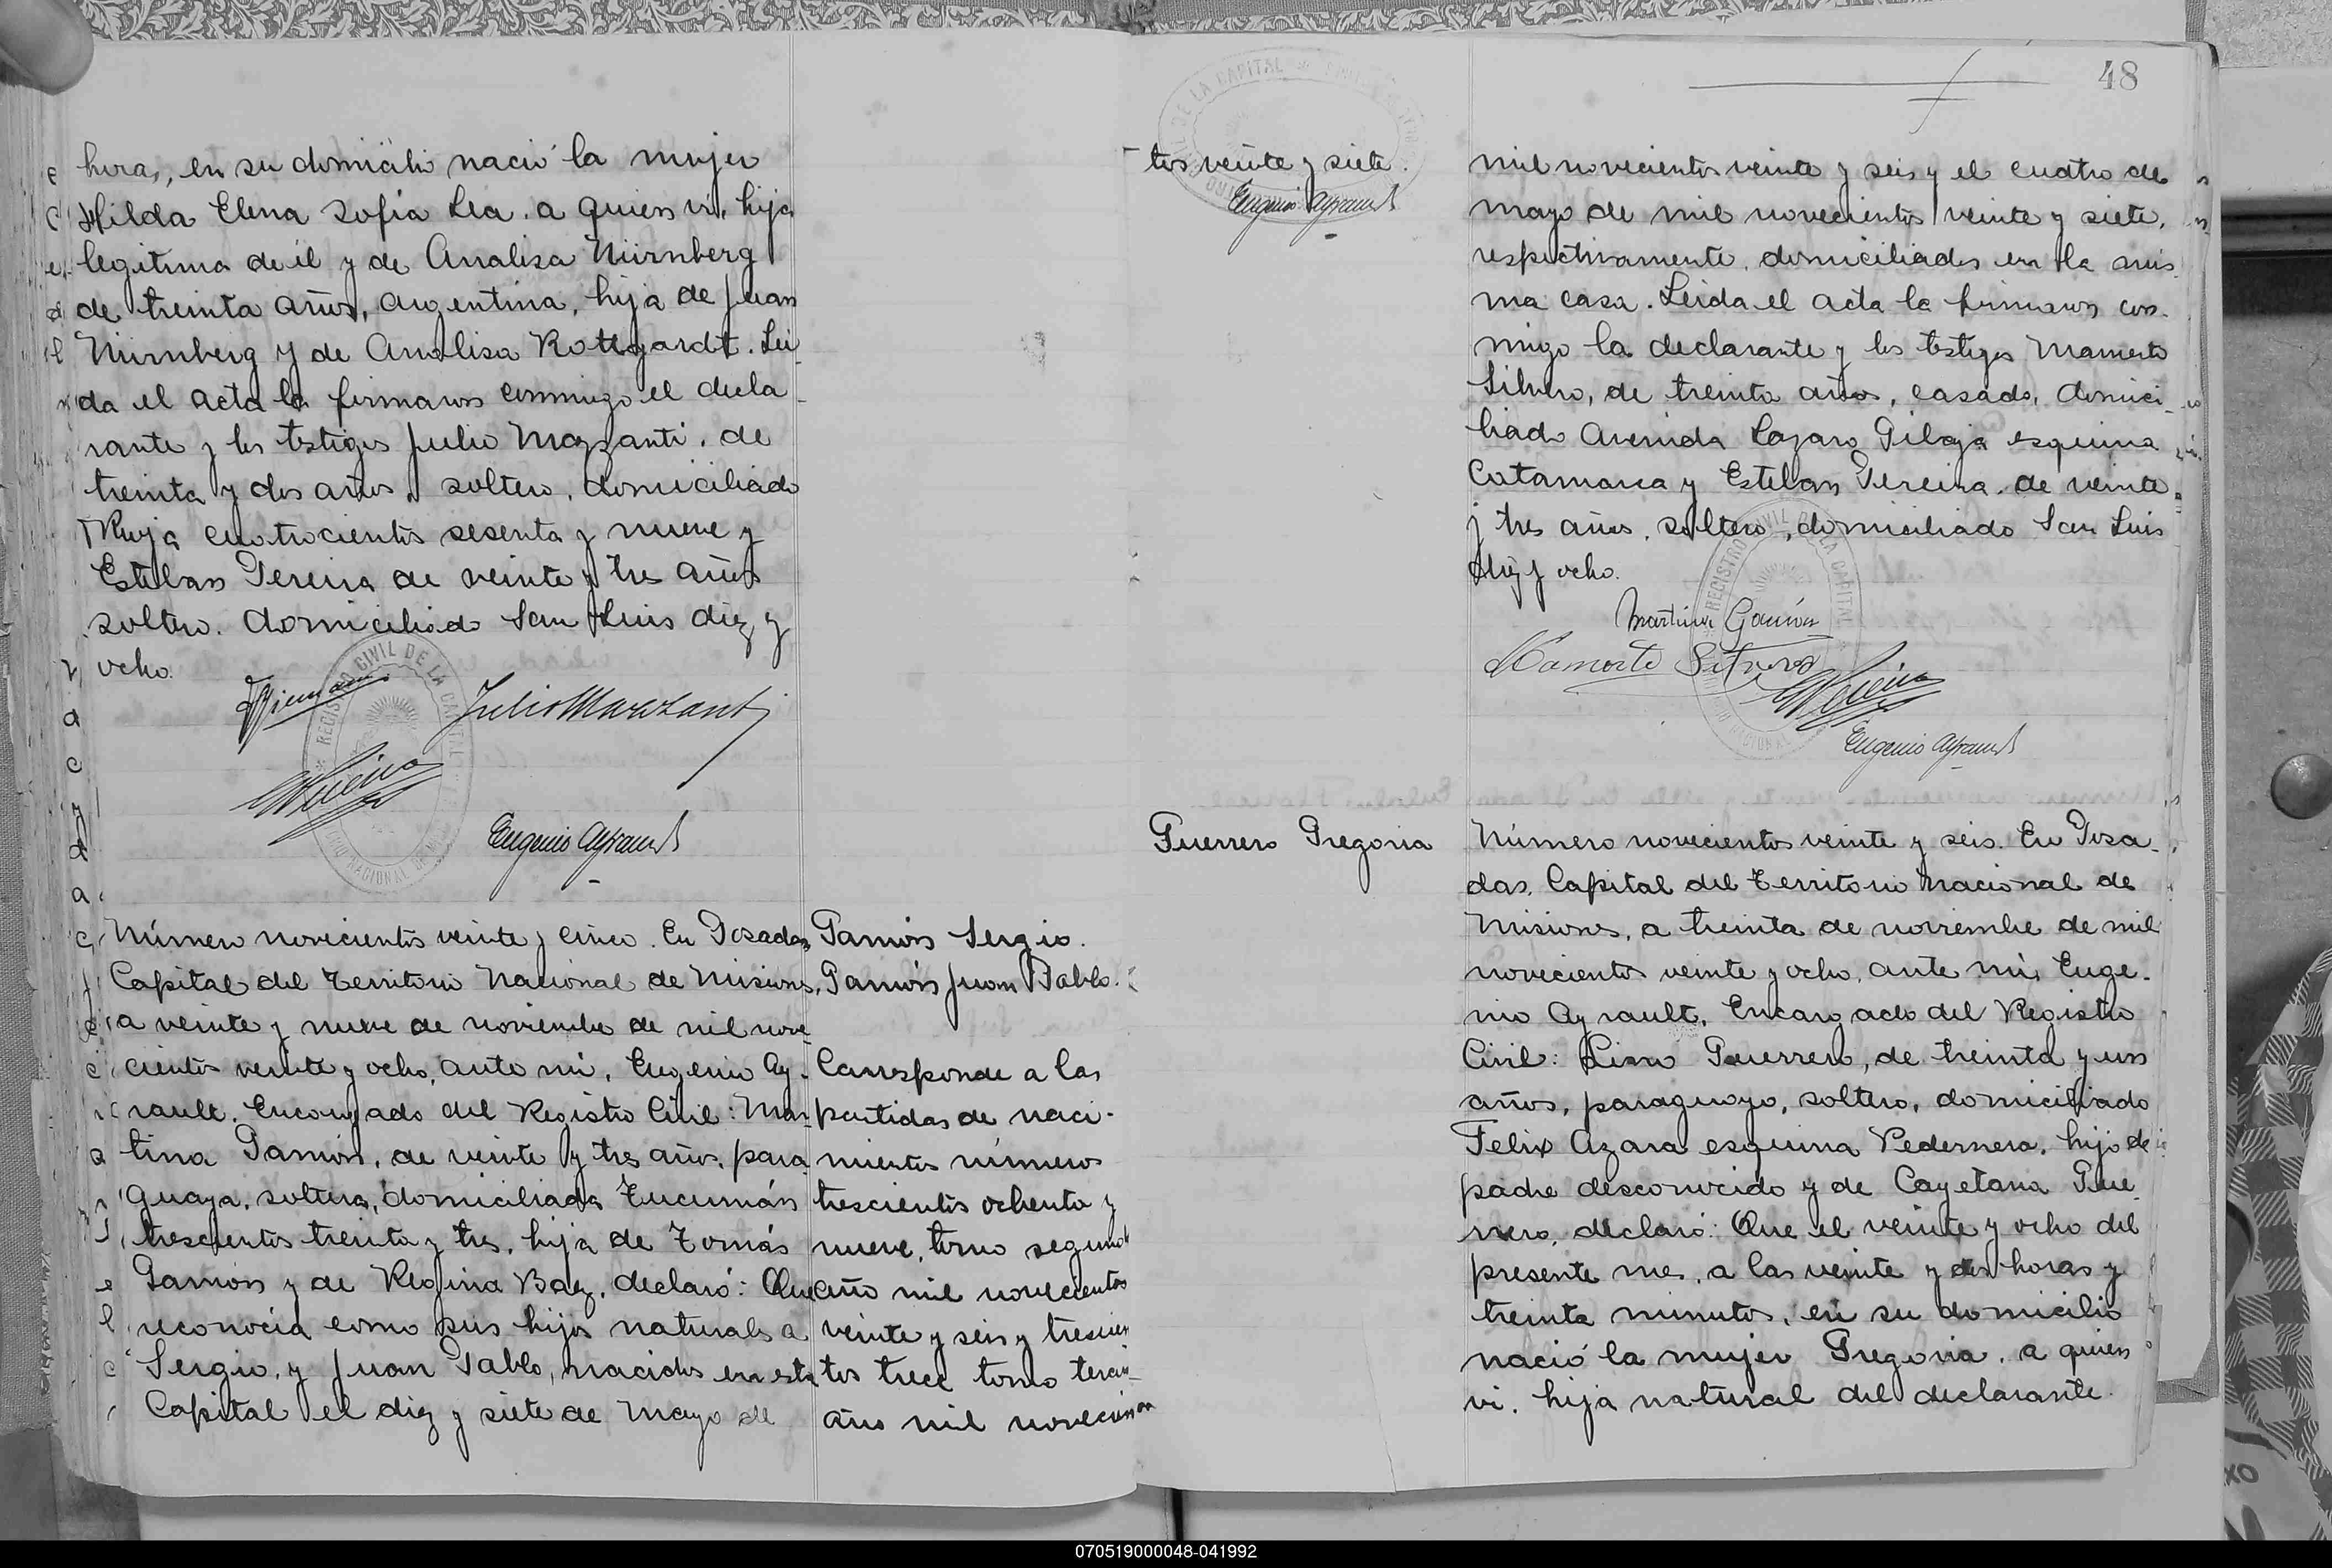 horas, en su domicilio nació la mujer
Hilda Elena Sofía Lea. a quien vi, hija
legitima de él y de Analisa Nürnberg
de treinta años, argentina, hija de Juan
Nürnberg y de Analisa Rottgardt. Lei-
da el acta la firmaron conmigo el decla-
rante y los testigos Julio Mazzanti, de
treinta y dos años, soltero, domiciliado
Rioja cuatrocientos sesenta y nueve y
Esteban Pereira de veinte y tres años
soltero. domiciliado San Luis diez y
ocho.
Eugenio Ayrault
Número novecientos veinte y cinco. En Posadas
Capital del Territorio Nacional de Misiones,
a veinte y nueve de noviembre de mil nove-
cientos veinte y ocho, ante mi, Eugenio Ay-
rault, Encargado del Registro Civil: Mar-
tina Gamón, de veinte y tres años, para
guaya, soltera, domiciliada Tucumán
trescientos treinta y tres, hija de Tomás
Gamón y de Regina Baez, declaró: Que
reconocía como sus hijos naturales a
Sergio, y Juan Pablo, nacidos en esta
Capital el diez y siete de Mayo de
Gamón Sergio.
Gamón Juan Pablo.
Corresponde a las
partidas de naci-
mientos números
trescientos ochenta y
nueve, tomo segundo
año mil novecientos
veinte y seis y trescien
tos trece tomo tercero
año mil novecien
48
tos veinte y siete.
Eugenio Ayrault
mil novecientos veinte y seis y el cuatro de
mayo de mil novecientos veinte y siete,
respectivamente, domiciliados en la mis
ma casa. Leida el acta la firmaron con-
migo la declarante y los testigos Mamerto
Silvero, de treinta años, casado, domici-
liado Avenida Lazaro Gibaja esquina
Catamarca y Esteban Pereira, de veinte
y tres años, soltero, domiciliado San Luis
diez y ocho.
Martina Gamón
Mamerto Silvero
Eugenio Ayrault
REGISTRO CIVIL DE LA CAPITAL
Guerrero Gregoria
Número novecientos veinte y seis. En Posa-
das, Capital del Territorio Nacional de
Misiones, a treinta de noviembre de mil
novecientos veinte y ocho, ante mi, Euge-
nio Ayrault, Encargado del Registro
Civil: Lino Guerrero, de treinta y un
años, paraguayo, soltero, domiciliado
Felix Azara esquina Pedernera, hijo de
padre desconocido y de Cayetana Gue-
rrero, declaró: Que el veinte y ocho del
presente mes, a las veinte y dos horas y
treinta minutos, en su domicilio
nació la mujer Gregoria, a quien
vi, hija natural del declarante.
070519000048-041992